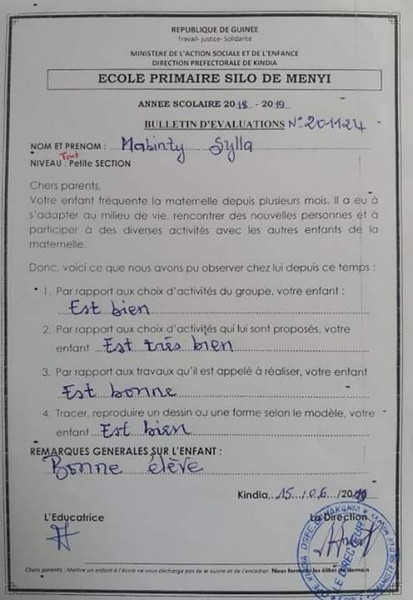 REPUBLIQUE DE GUINÉE
Travail- justice- Solidarite
MINISTERE DE L'ACTION SOCIALE ET DE L'ENFANCE
DIRECTION PREFECTORALE DE KINDIA
ECOLE PRIMAIRE SILO DE MENYI
ANNEE SCOLAIRE 2018 - 2019
BULLETIN D'EVALUATIONS N° 201124
NOM ET PRENOM : Mabinty Sylla
Tout
NIVEAU : Petite SECTION
Chers parents,
Votre enfant fréquente la maternelle depuis plusieurs mois. Il a eu à
s'adapter au milieu de vie, rencontrer des nouvelles personnes et à
participer à des diverses activités avec les autres enfants de la
maternelle.
Donc, voici ce que nous avons pu observer chez lui depuis ce temps :
1. Par rapport aux choix d'activités du groupe, votre enfant :
Est bien
2. Par rapport aux choix d'activités qui lui sont proposés, votre
enfant Est très bien
3. Par rapport aux travaux qu'il est appelé à réaliser, votre enfant
Est bonne
4. Tracer, reproduire un dessin ou une forme selon le modèle, votre
enfant Est bien
REMARQUES GENERALES SUR L'ENFANT :
Bonne élève
Kindia, 15 / 06 / 2019
L'Educatrice La Direction
LE DIRECTEUR
Chers parents : Mettre un enfant à l'école ne vous décharge pas de le suivre et de l'encadrer. Nous formons les élites de demain